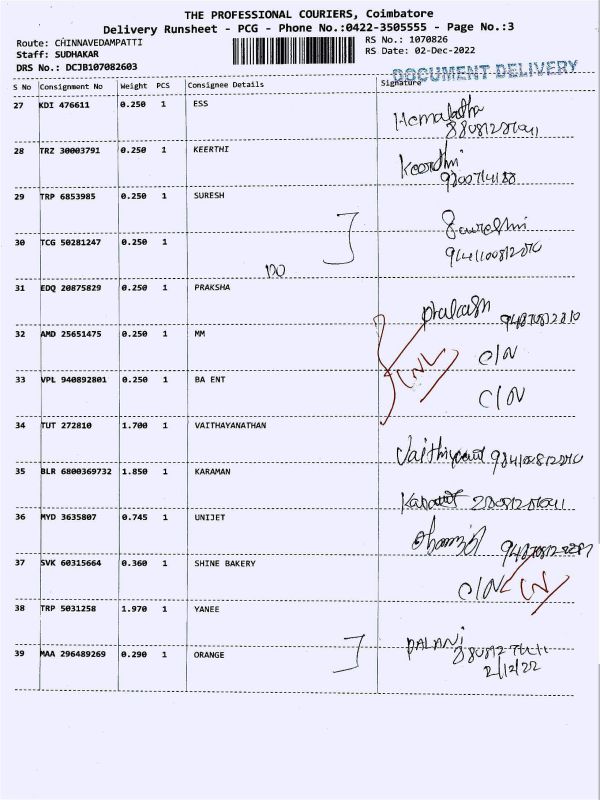 THE PROFESSIONAL COURIERS, Coimbatore
Delivery Runsheet - PCG - Phone No.:0422-3505555 - Page No.:3
Route: CHINNAVEDAMPATTI RS No.: 1070826
Staff: SUDHAKAR RS Date: 02-Dec-2022
DRS No.: DCJB107082603
DOCUMENT DELIVERY
S No Consignment No Weight PCS Consignee Details Signature
27 KDI 476611 0.250 1 ESS
Hemalatha
28 TRZ 30003791 0.250 1 KEERTHI
Keerthi
29 TRP 6853985 0.250 1 SURESH
30 TCG 50281247 0.250 1
DO
31 EDQ 20875829 0.250 1 PRAKSHA
32 AMD 25651475 0.250 1 MM
C/N
33 VPL 940892801 0.250 1 BA ENT
C/N
34 TUT 272810 1.700 1 VAITHAYANATHAN
35 BLR 6800369732 1.850 1 KARAMAN
36 MYD 3635807 0.745 1 UNIJET
37 SVK 60315664 0.360 1 SHINE BAKERY
C/N
38 TRP 5031258 1.970 1 YANEE
PALANI
39 MAA 296489269 0.290 1 ORANGE
2/12/22